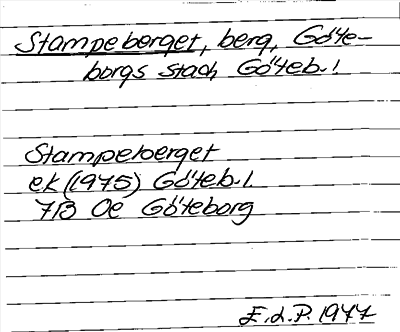 Stampeberget, berg, Göte-
borgs stad, Göteb. l.
Stampeberget
ek (1975) Göteb. l.
7B 0e Göteborg
E.d.P. 1977